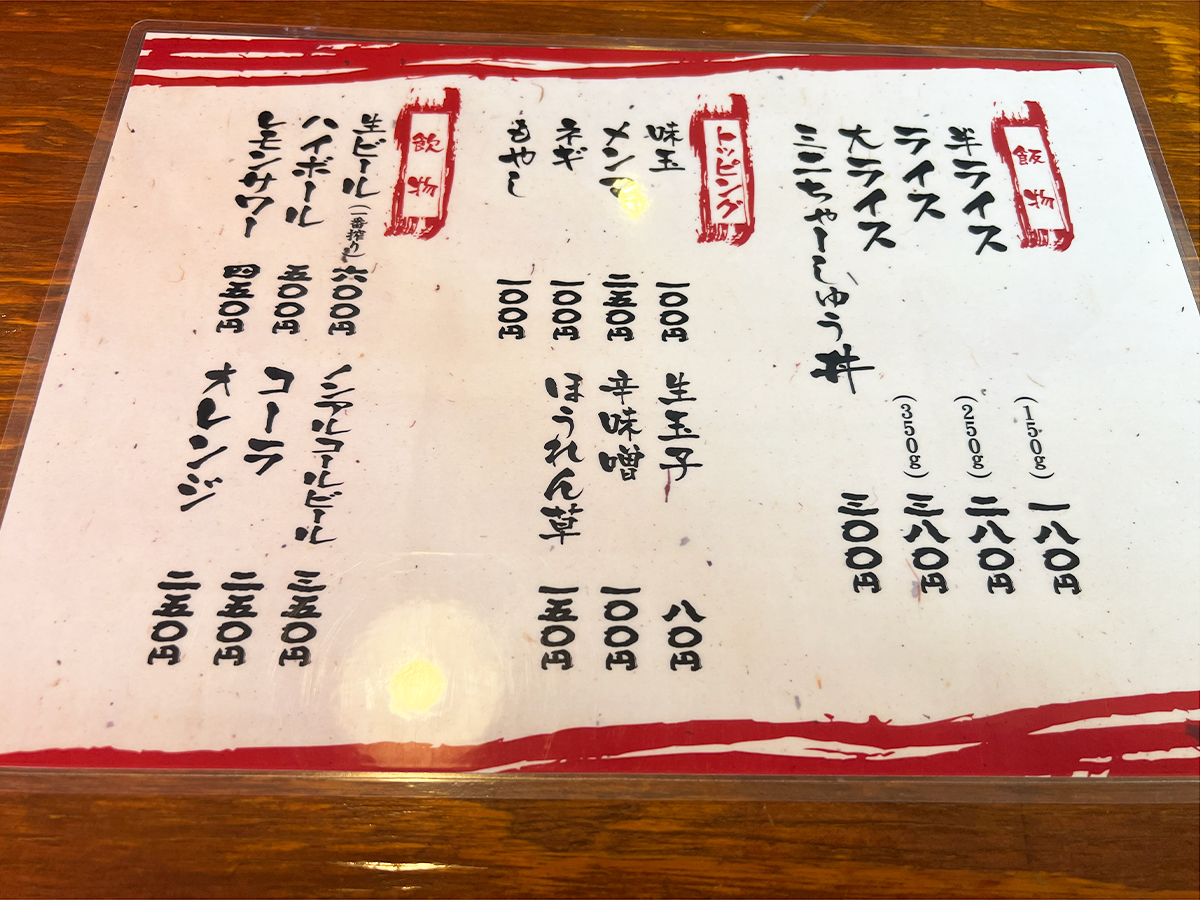 飯物
半ライス (150g) 一八〇円
ライス (250g) 二八〇円
大ライス (350g) 三八〇円
ミニちゃーしゅう丼 三〇〇円
トッピング
味玉 一〇〇円
メンマ 二五〇円
ネギ 一〇〇円
もやし 一〇〇円
生玉子 八〇円
辛味噌 一〇〇円
ほうれん草 一五〇円
飲物
生ビール(一番搾り) 六〇〇円
ハイボール 五〇〇円
レモンサワー 四五〇円
ノンアルコールビール 三五〇円
コーラ 二五〇円
オレンジ 二五〇円